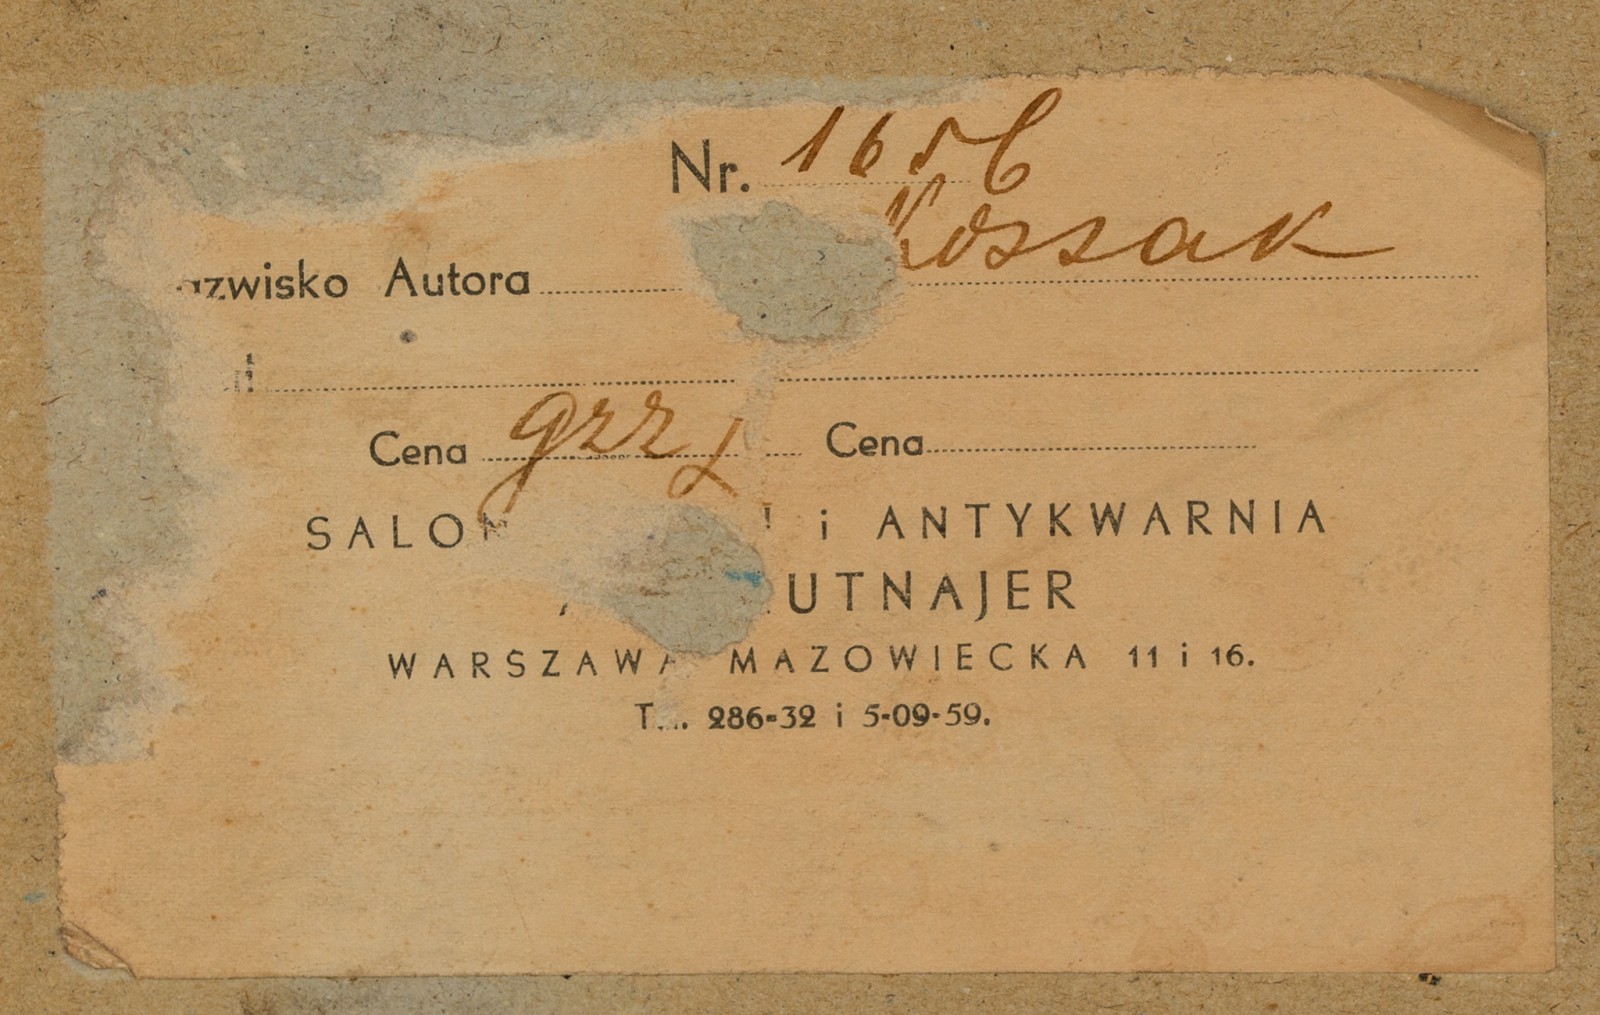 Nr. 1656
Kossak
azwisko Autora
Cena grz Cena
SALON i ANTYKWARNIA
UTNAJER
WARSZAWA MAZOWIECKA 11 i 16.
286-32 i 5-09-59.